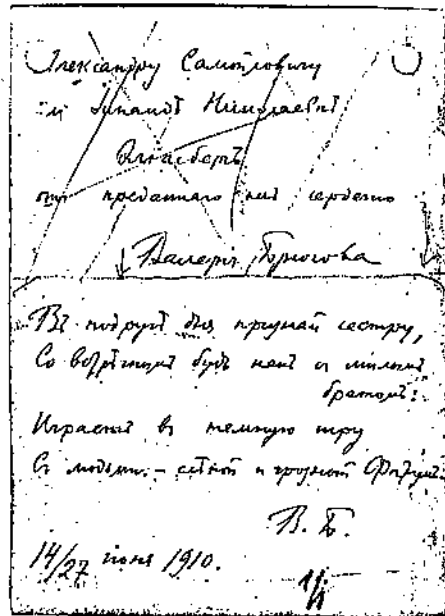 Александру Самойловичу
и Зинаидѣ Николаевнѣ
отъ преданнаго имъ сердечно
Валерія Брюсова
Въ подругѣ дня признай сестру,
Со встрѣчнымъ будь какъ съ милымъ
братомъ:
Играетъ въ темную игру
Съ людьми – слѣпой и грозный Фатумъ.
В. Б.
14/27 іюня 1910.